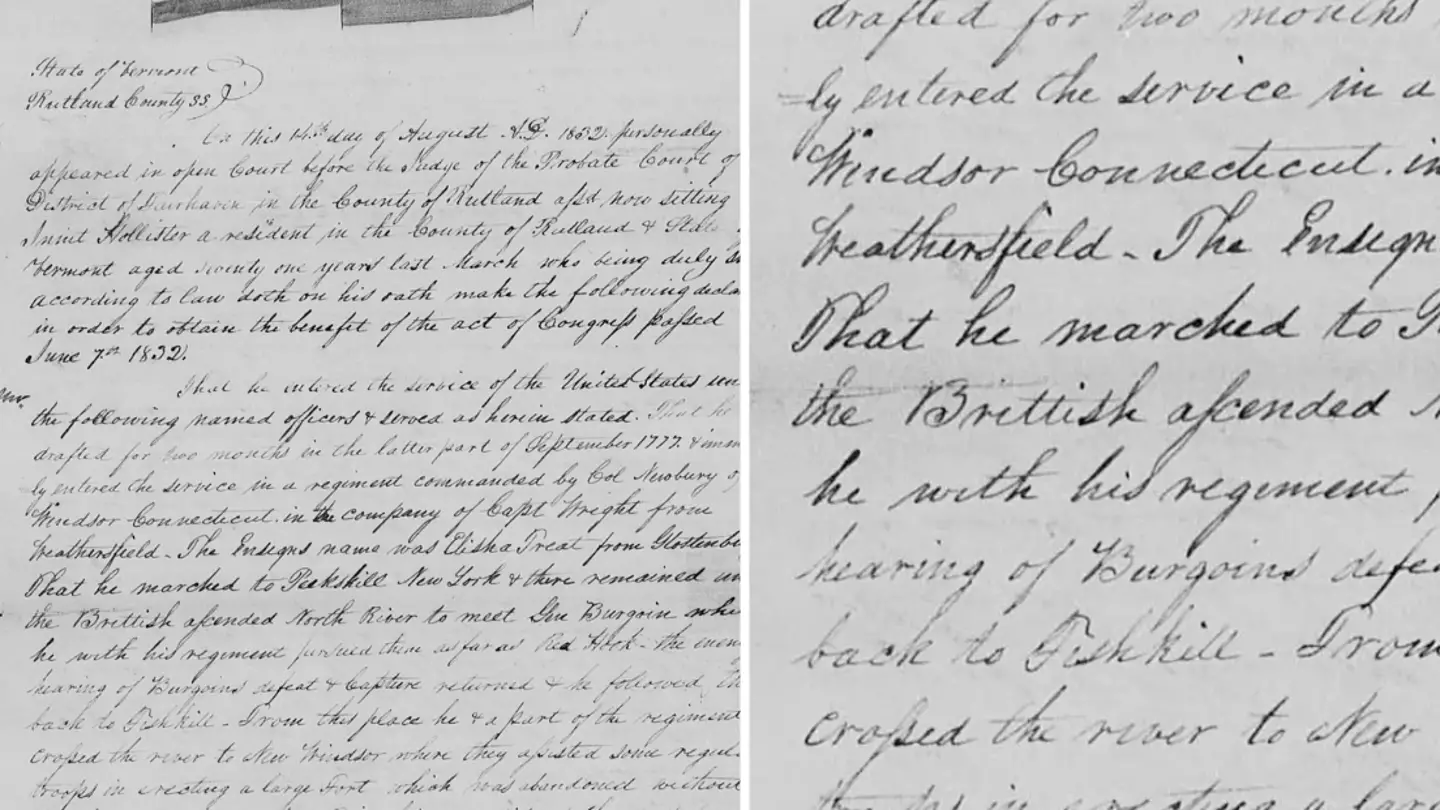 State of Vermont
Rutland County SS.
On this 14th day of August A.D. 1832. personally
appeared in open Court before the Judge of the Probate Court of
District of Fairhaven in the County of Rutland afsd now sitting
Innit Hollister a resident in the County of Rutland & State
Vermont aged seventy one years last March who being duly
according to law doth on his oath make the following decla
in order to obtain the benefit of the act of Congress passed
June 7th 1832.
That he entered the service of the United States un
the following named officers & served as herein stated. That he
drafted for two months in the latter part of September 1777. & imm
ly entered the service in a regiment commanded by Col Newbury of
Windsor Connecticut. in the company of Capt Wright from
Weathersfield - The Ensigns name was Elisha Treat from Glostenbu
That he marched to Peekskill New York & there remained un
the Brittish ascended North River to meet Gen Burgoin whe
he with his regiment pursued them as far as Red Hook - the enem
hearing of Burgoins defeat & Capture returned & he followed th
back to Fishkill - From this place he & a part of the regiment
crossed the river to New Windsor where they assisted some regul
troops in erecting a large Fort which was abandoned without
drafted for two months
ly entered the service in a
Windsor Connecticut. in
Weathersfield - The Ensign
That he marched to P
the Brittish ascended N
he with his regiment p
hearing of Burgoins defe
back to Fishkill - From
crossed the river to New
troops in erecting a lar